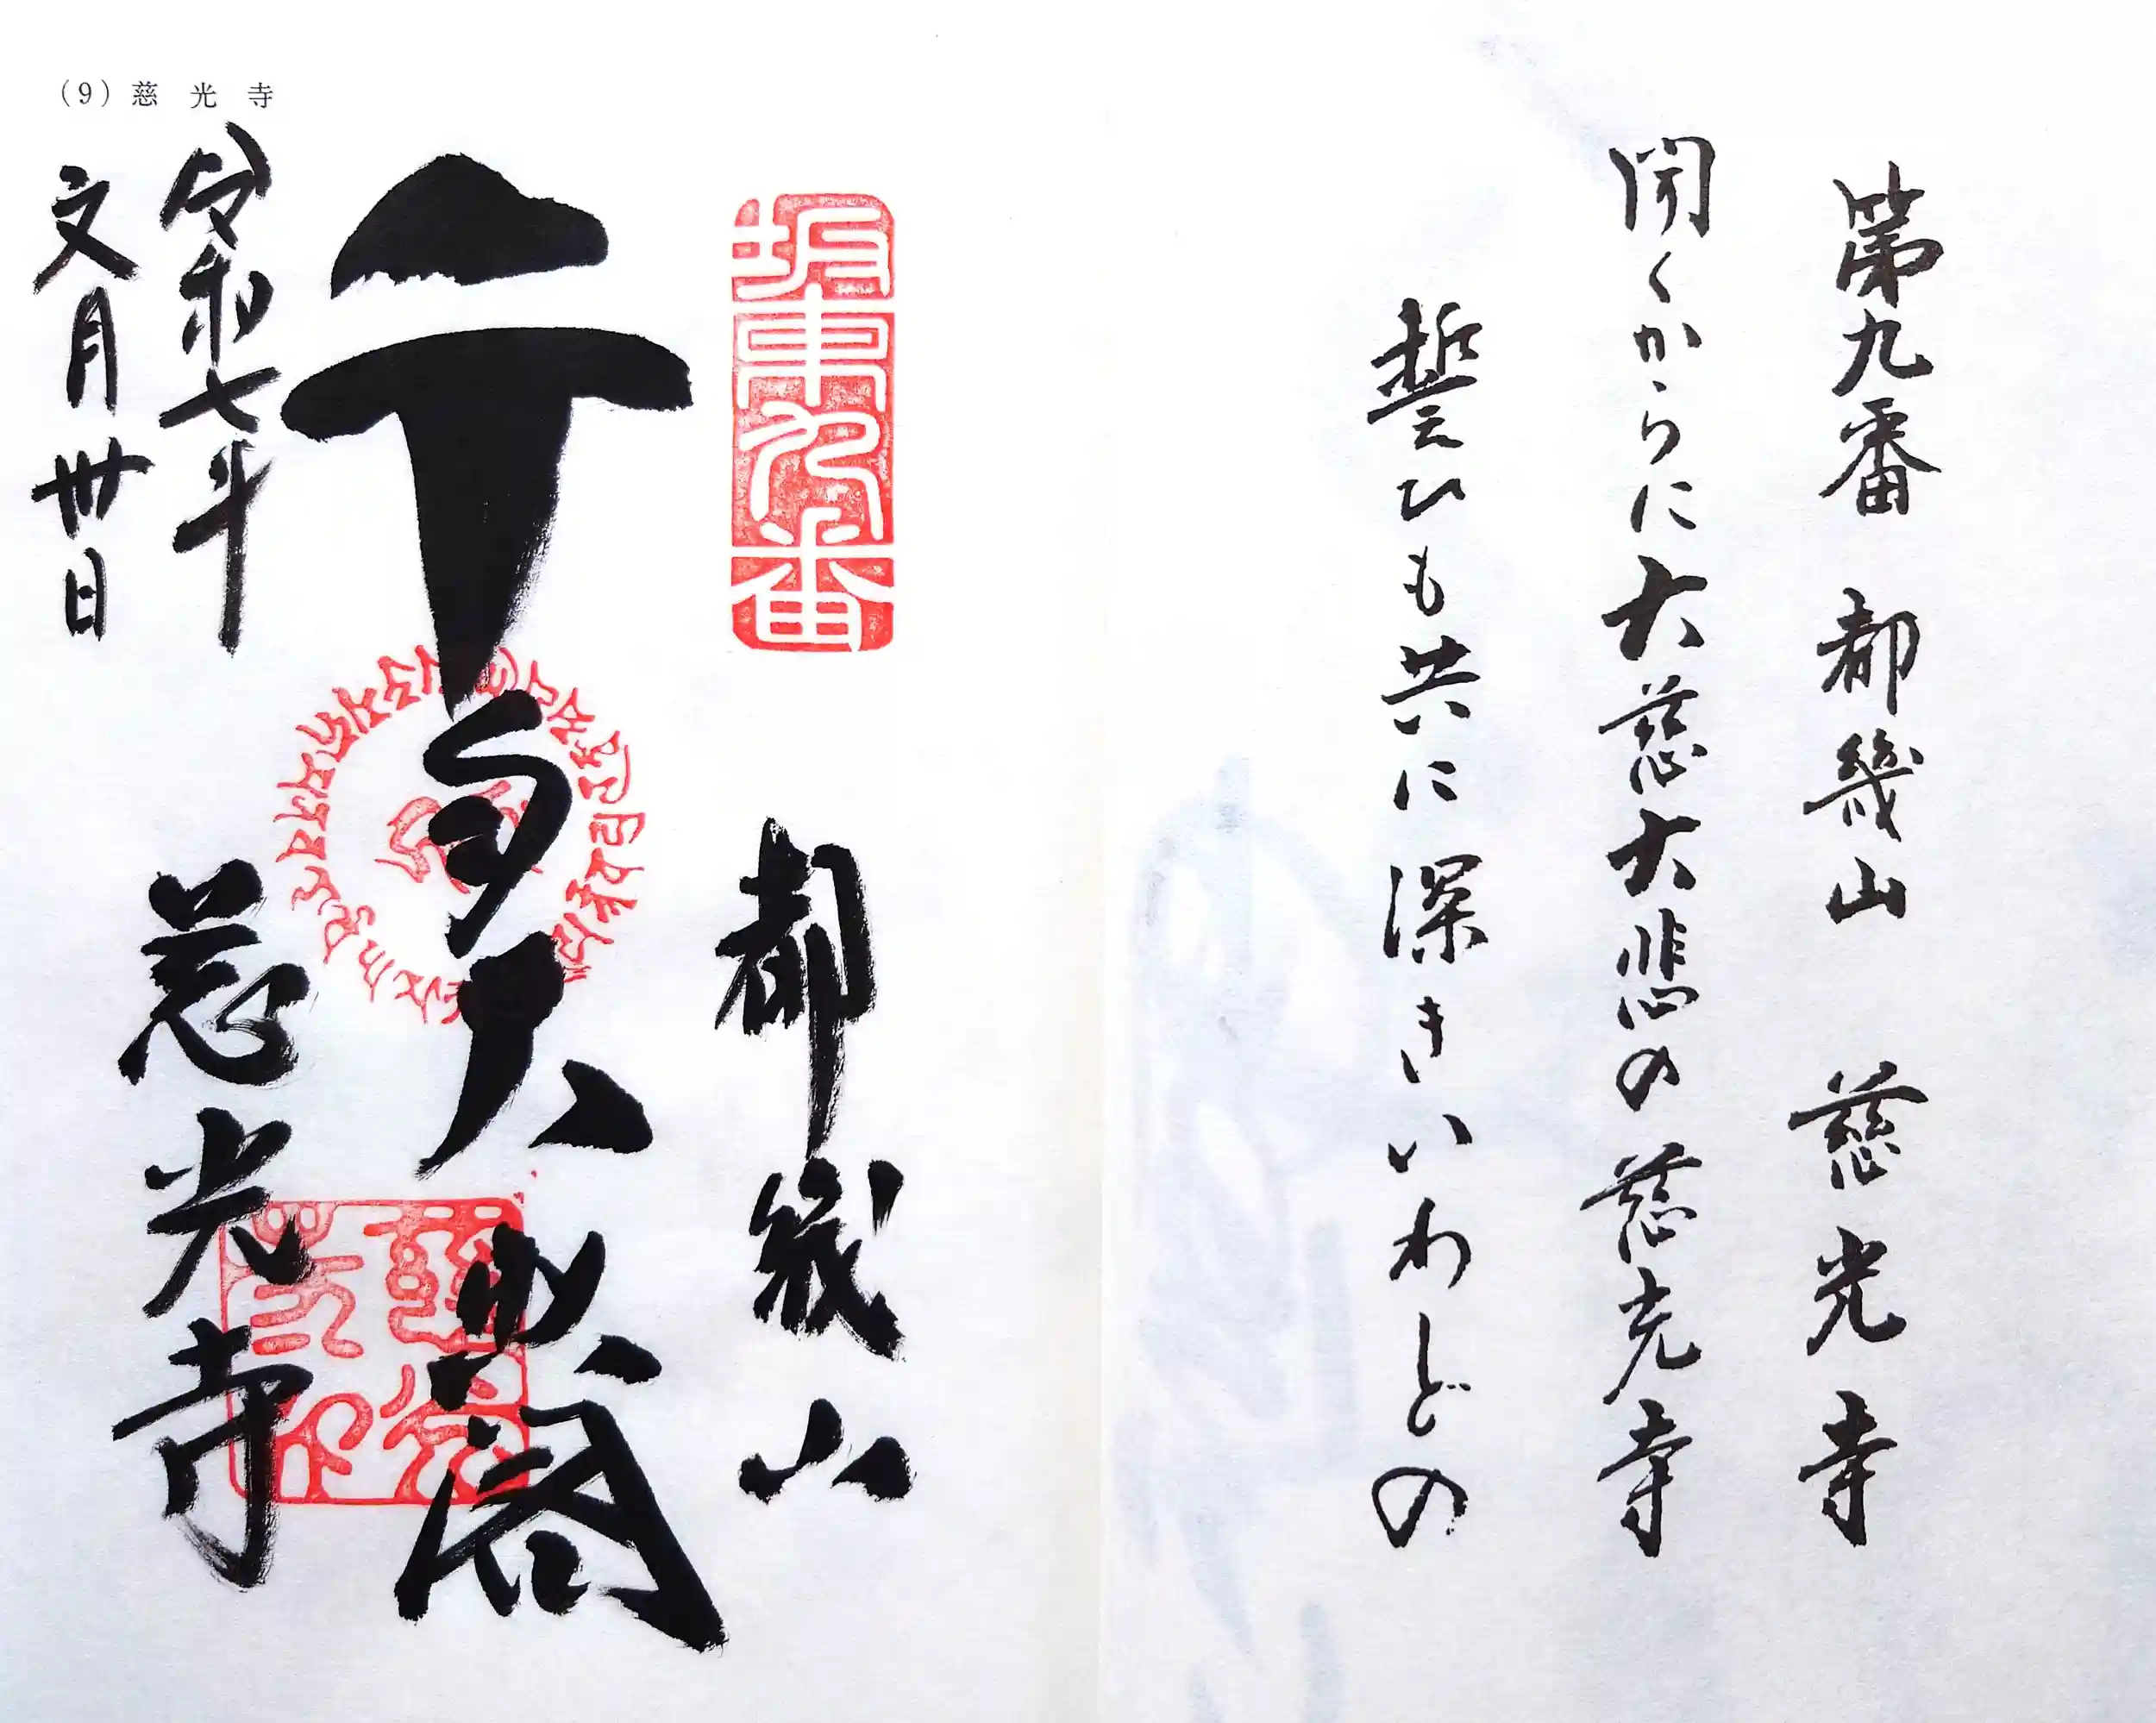 第九番 都幾山 慈光寺
聞くからに大慈大悲の慈光寺
誓ひも共に深きいわどの
(9)慈光寺
坂東九番
都幾山
千手大悲閣
慈光寺印
慈光寺
令和七年
文月卅日